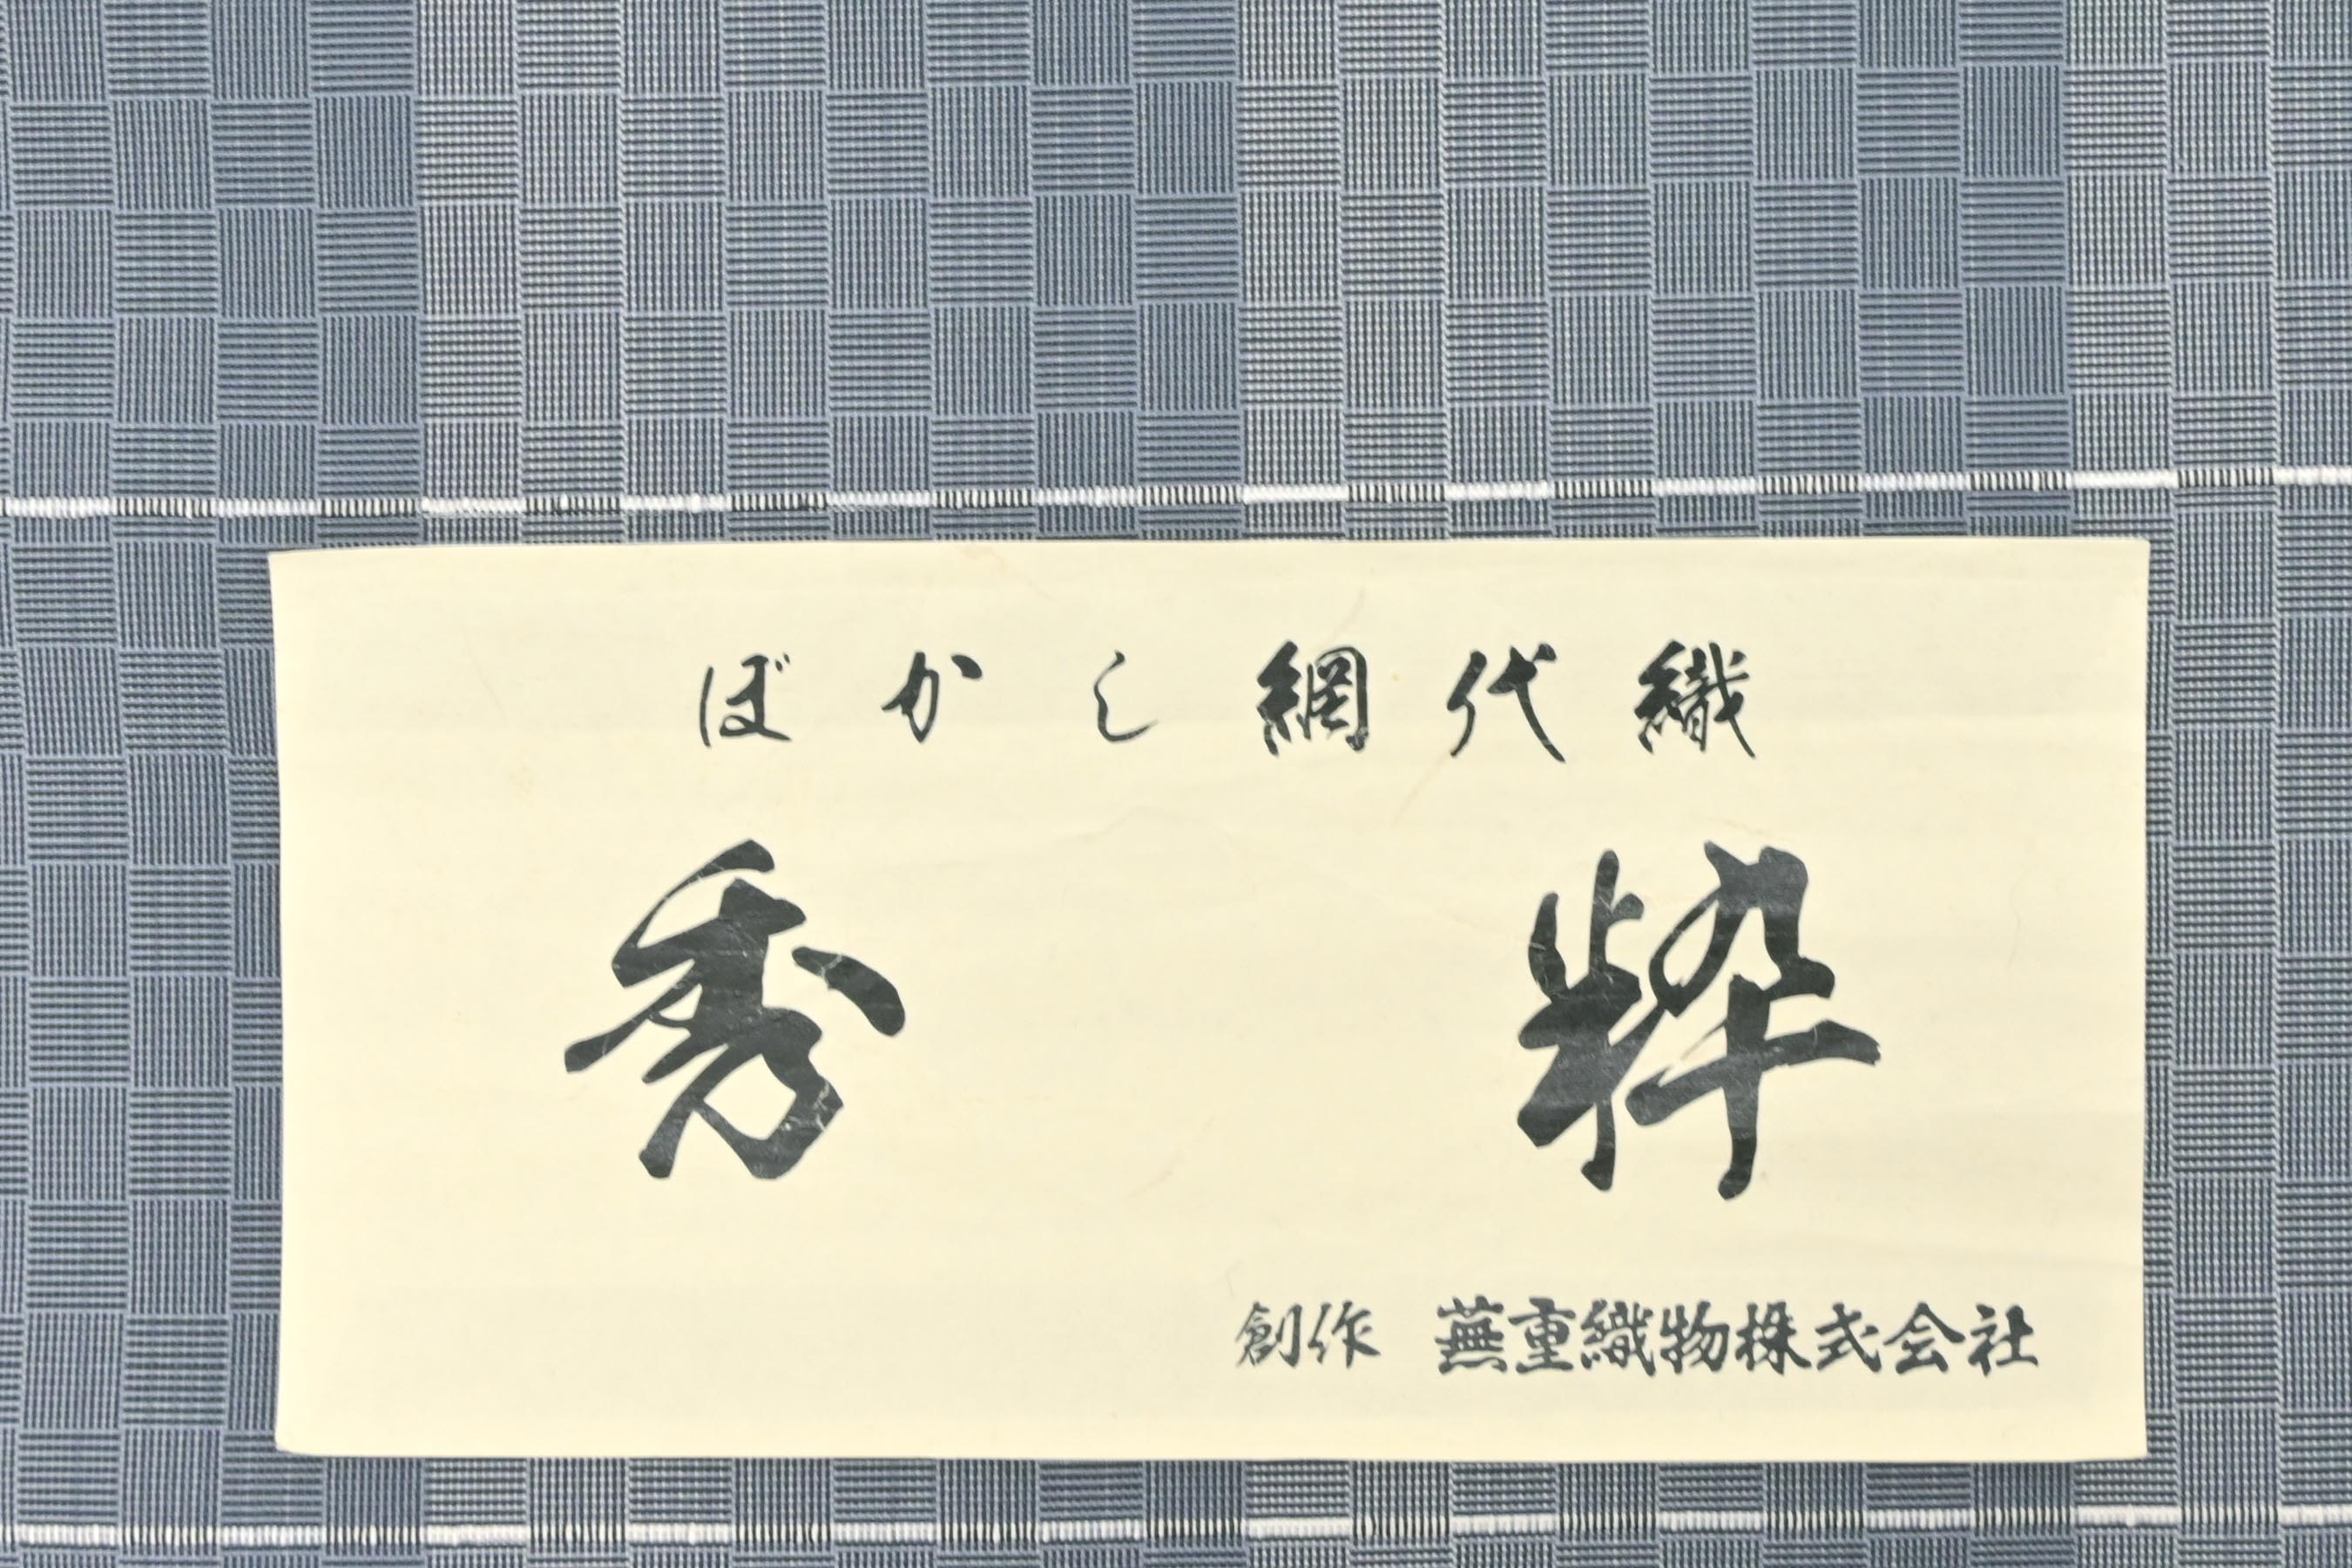 ぼかし網代織
秀粋
創作 蕪重織物株式会社